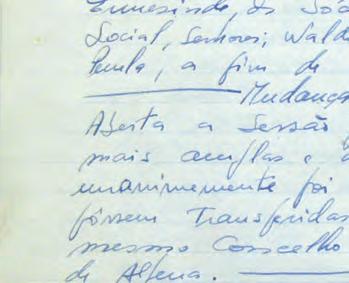 Ermesinde, os Sóc
Social, Senhores; Walde
Penla, a fim de
Mudança
Aberta a Sessão
mais amplas e a
unanimemente foi
fôssem Transferidas
mesmo Concelho
de Alfena.